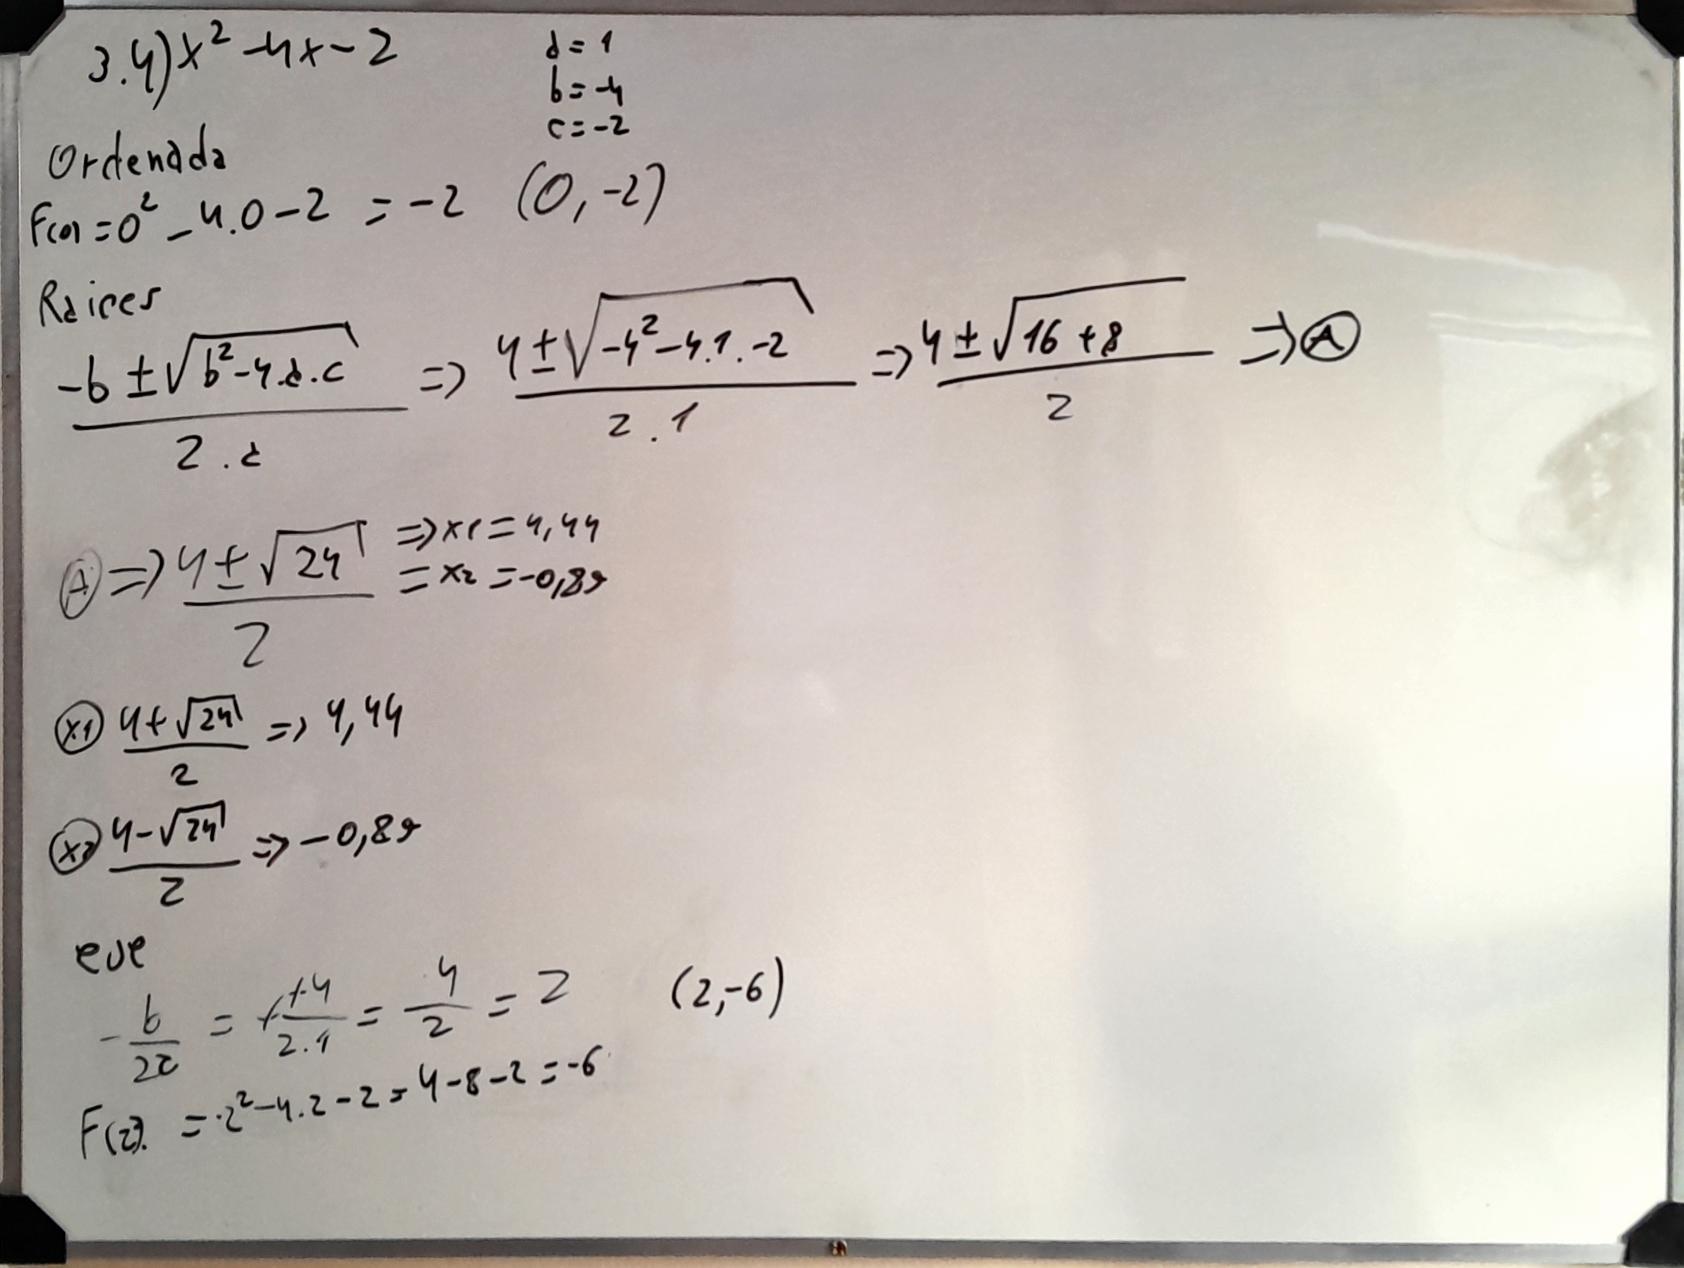 3.4) x² -4x - 2
a = 1
b = -4
c = -2
Ordenada
F(0) = 0² - 4.0 - 2 = -2 (0, -2)
Raices
-b ± √b² - 4.a.c / 2.a => 4 ± √-4² - 4.1.-2 / 2.1 => 4 ± √16 + 8 / 2 => A
A => 4 ± √24 / 2 => x1 = 4,44
= x2 = -0,89
x1 4 + √24 / 2 => 4,44
x2 4 - √24 / 2 => -0,89
eje
- b / 2a = + +4 / 2.1 = 4 / 2 = 2 (2, -6)
F(2). = 2² - 4.2 - 2 = 4 - 8 - 2 = -6